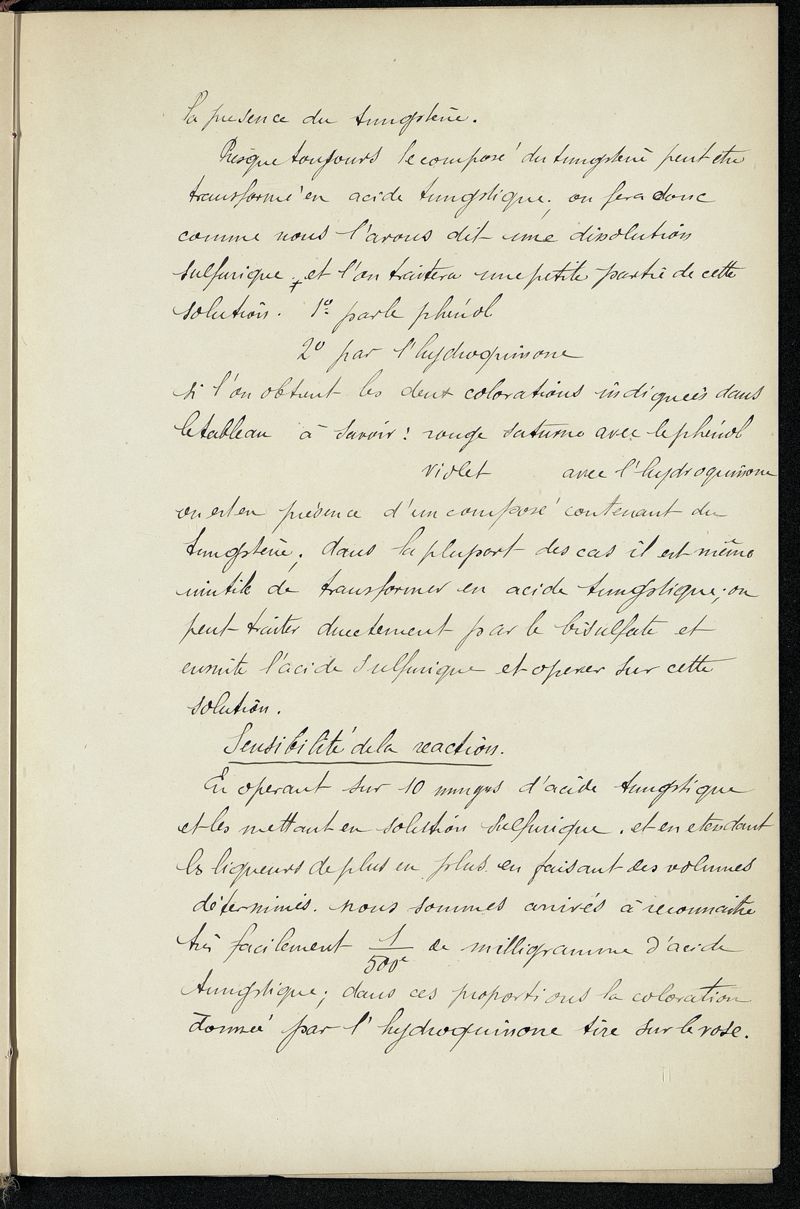 la presence du tungstène.
Presque toujours le composé du tungstène peut etre
transformé en acide tungstique; on fera donc
comme nous l'avons dit une dissolution
sulfurique. et l'on traitera une petite partie de cette
solution. 1º par le phénol
2º par l'hydroquinone
si l'on obtient les deux colorations indiquées dans
le tableau à savoir: rouge saturne avec le phénol
violet avec l'hydroquinone
on est en présence d'un composé contenant du
tungstène; dans la plupart des cas il est même
inutile de transformer en acide tungstique; on
peut traiter directement par le bisulfate et
ensuite l'acide sulfurique et operer sur cette
solution.
Sensibilité de la reaction.
En operant sur 10 mmgrs d'acide tungstique
et les mettant en solution sulfurique. et en etendant
les liqueurs de plus en plus. en faisant des volumes
déterminés. nous sommes arrivés à reconnaitre
très facilement 1/500e de milligramme d'acide
tungstique; dans ces proportions la coloration
donnée par l'hydroquinone tire sur le rose.